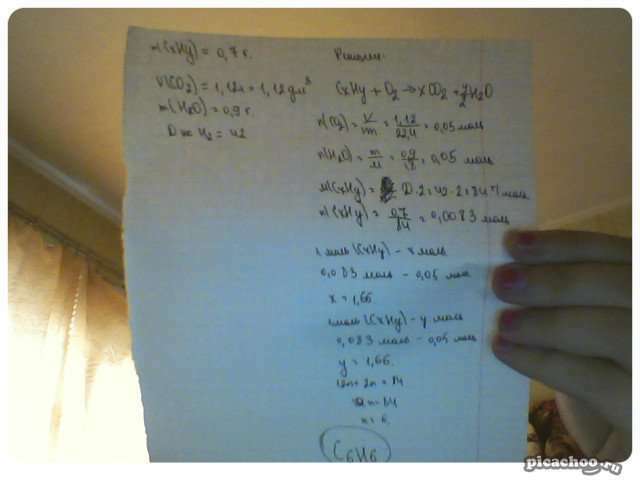 m(CxHy) = 0,7 г.
V(CO2) = 1,12л = 1,12 дм³
m(H2O) = 0,9 г.
D по H2 = 42
Решение:
CxHy + O2 → xCO2 + y/2 H2O
n(CO2) = V/m = 1,12/22,4 = 0,05 моль
n(H2O) = m/M = 0,9/18 = 0,05 моль
M(CxHy) = D·2 = 42·2 = 84 г/моль
n(CxHy) = 0,7/84 = 0,0083 моль
1 моль (CxHy) – x моль
0,083 моль – 0,05 моль
x = 1,66
1 моль (CxHy) – y моль
0,083 моль – 0,05 моль
y = 1,66.
12n + 2n = 84
n = 84
n = 6.
C6H6
picachoo.ru